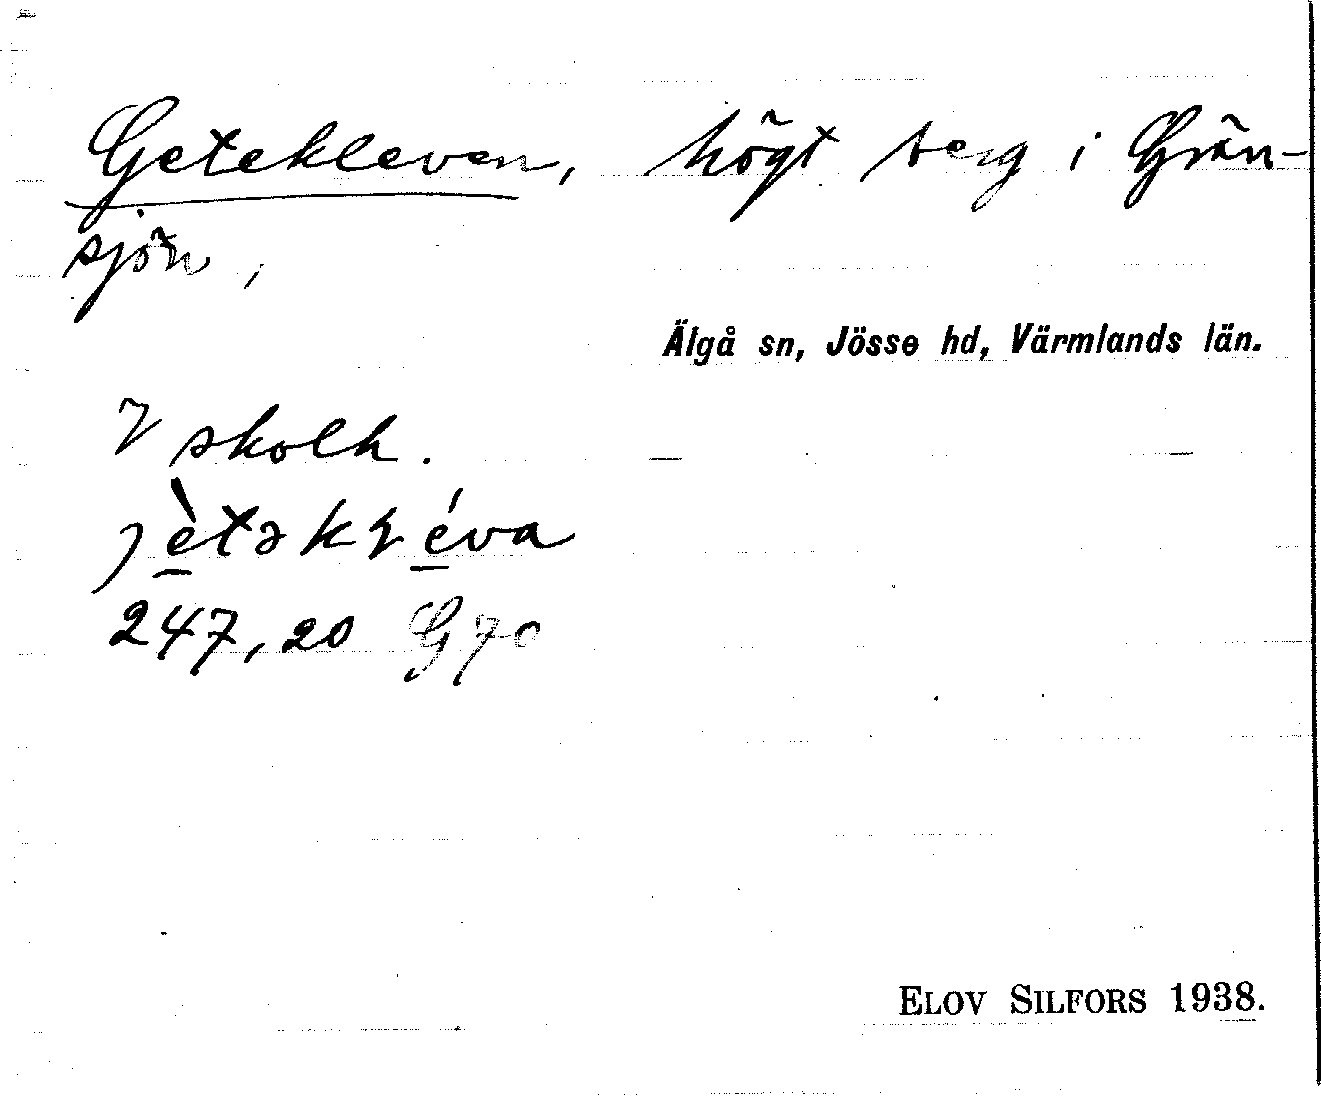 Getekleven, högt berg i Grän-
sjön,
Älgå sn, Jösse hd, Värmlands län.
V skolh.
jètəkɽéva
247,20 G70
ELOV SILFORS 1938.